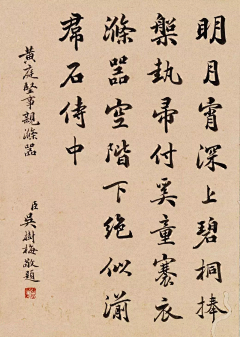 明月霄深上碧桐捧
槃執帚付奚童褰衣
滌器空階下絕似湔
帬石侍中
黃庭堅事親滌器
臣吳樹梅敬題